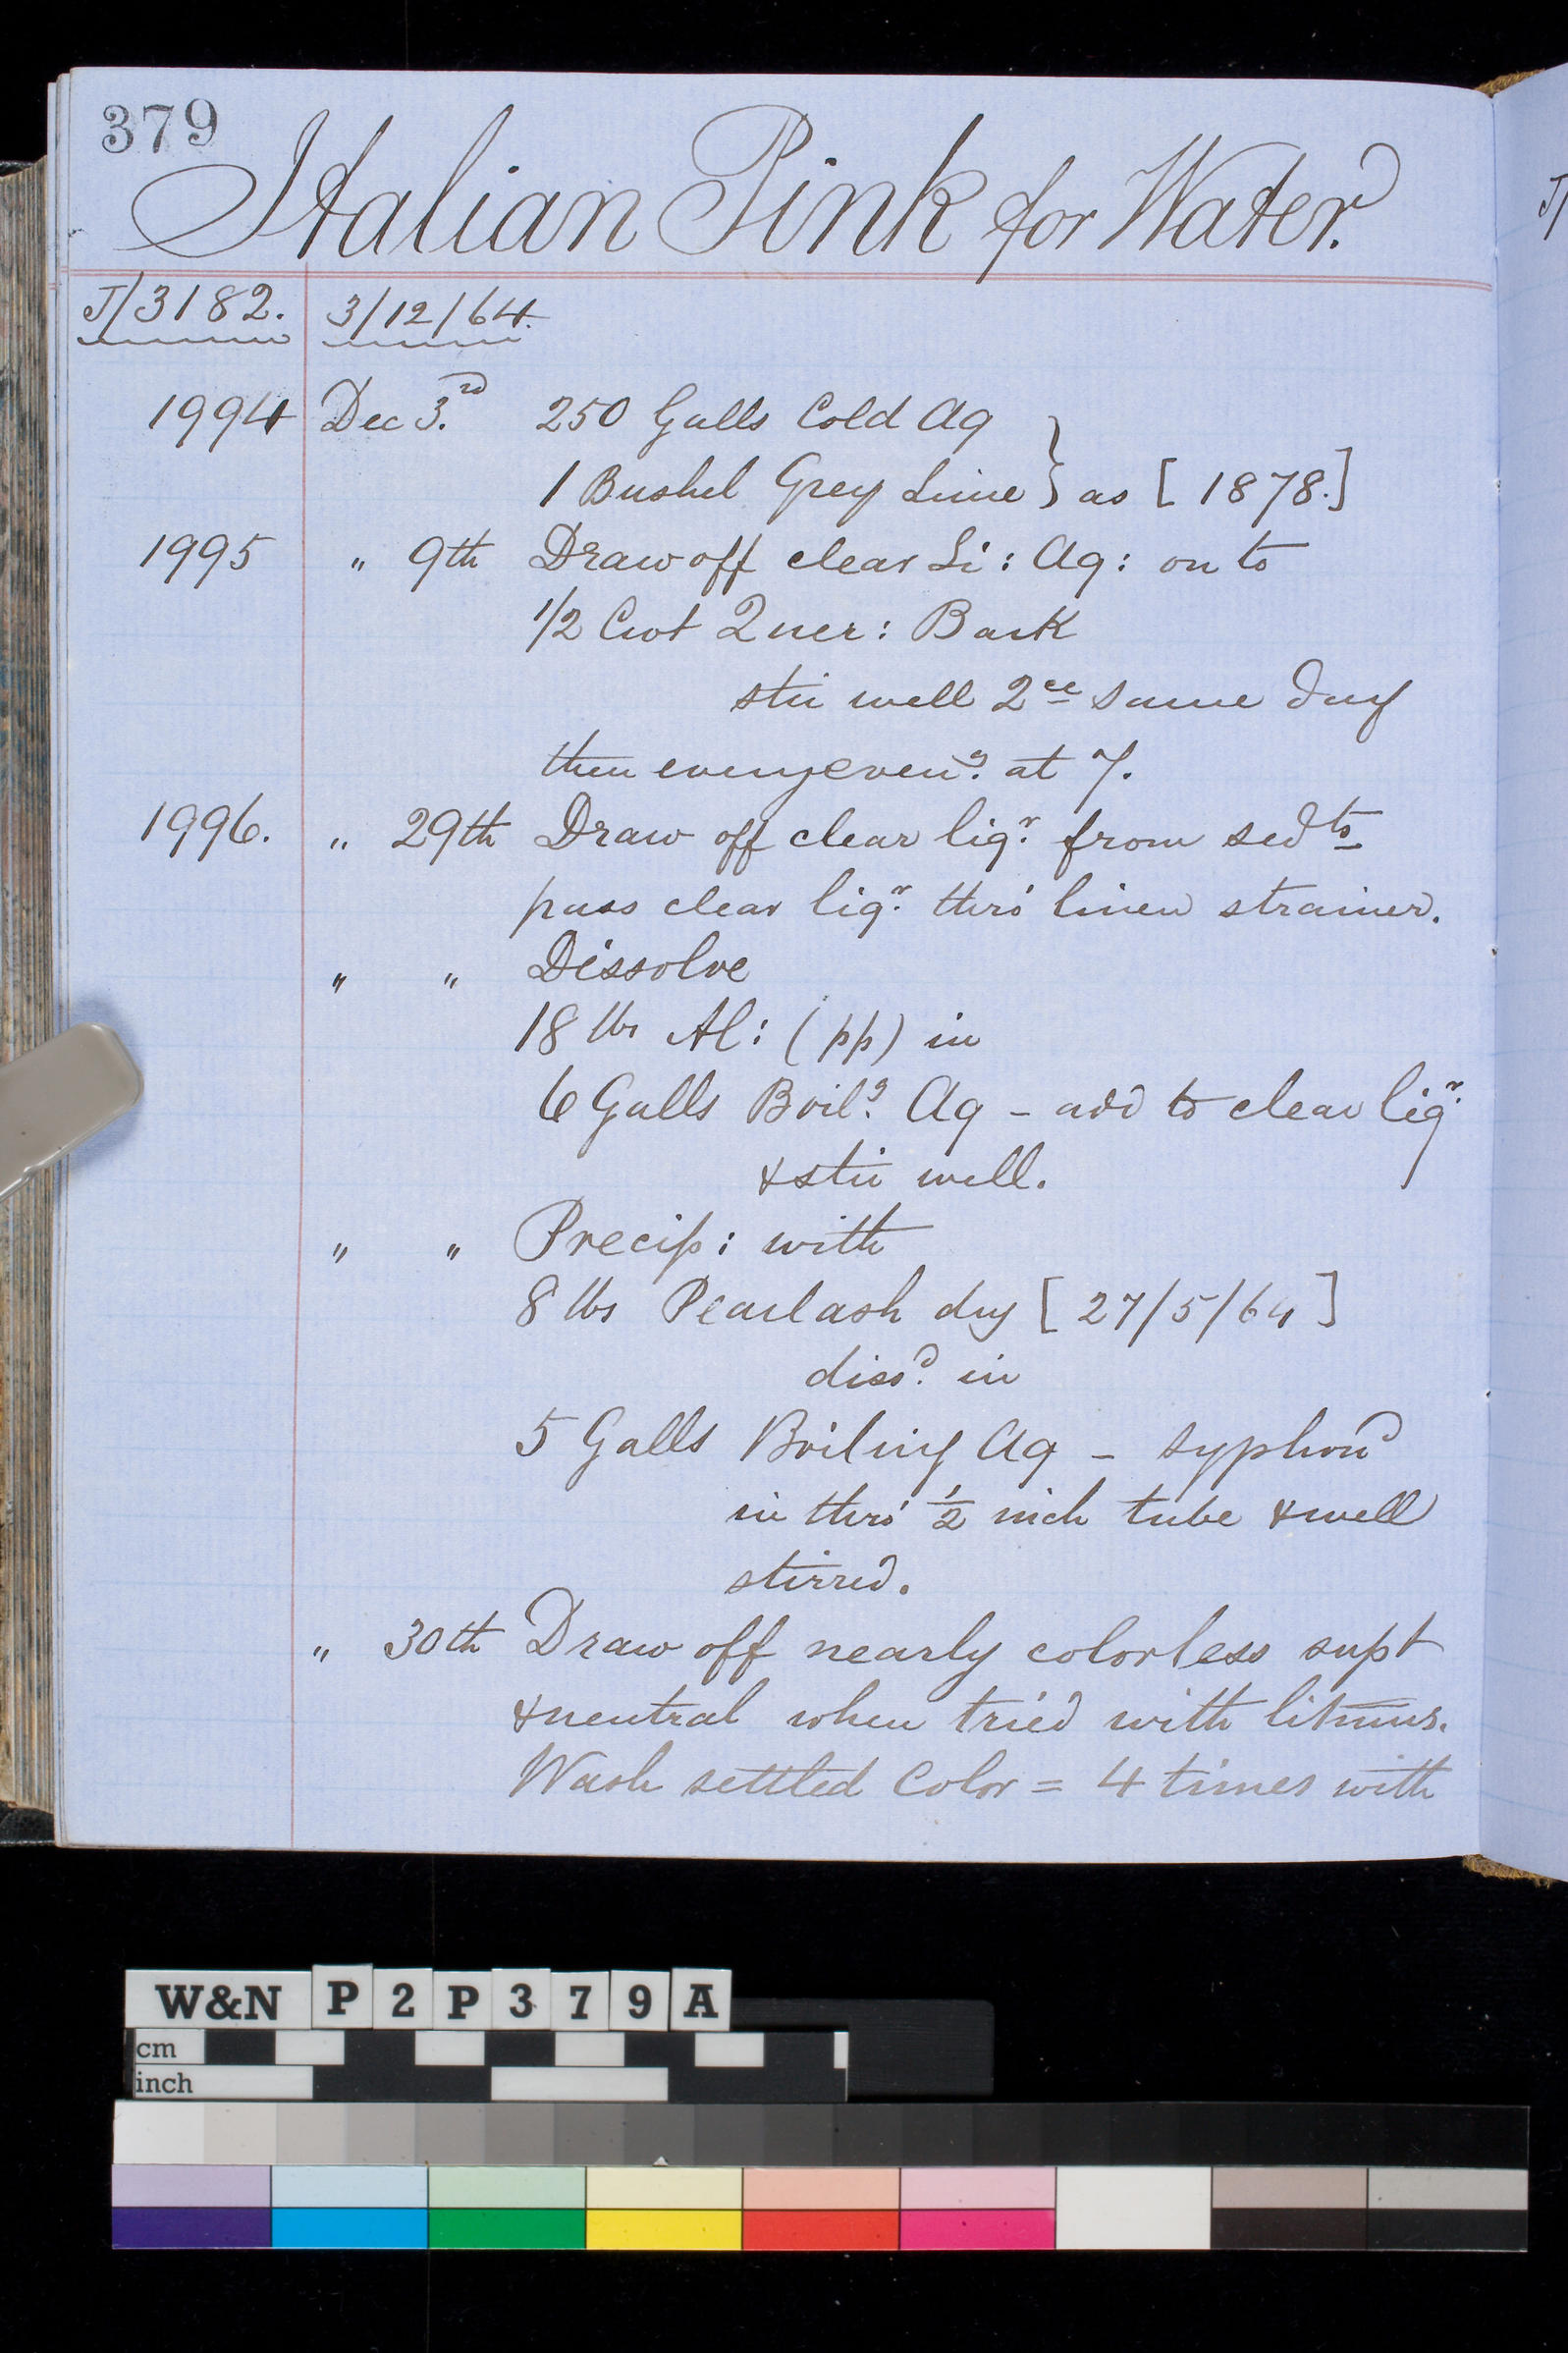 379
Italian Pink for Water.
J/3182. 3/12/64.
1994 Dec 3.rd 250 Galls Cold Aq
1 Bushel Grey Lime } as [1878.]
1995 " 9th Draw off clear Li: Aq: on to
1/2 Cwt Quer: Bark
stir well 2ce same day
then every eveng. at 7.
1996. " 29th Draw off clear liqr. from sedts
pass clear liqr. thro' linen strainer.
" " Dissolve
18 lbs Al: (pp) in
6 Galls Boilg. Aq - add to clear liqr.
& stir well.
" " Precip: with
8 lbs Pearlash dry [27/5/64]
dissd. in
5 Galls Boiling Aq - syphond
in thro' 1/2 inch tube & well
stirred.
" 30th Draw off nearly colorless supt
& neutral when tried with litmus.
Wash settled Color = 4 times with
J/
W&N P2P379A
cm
inch